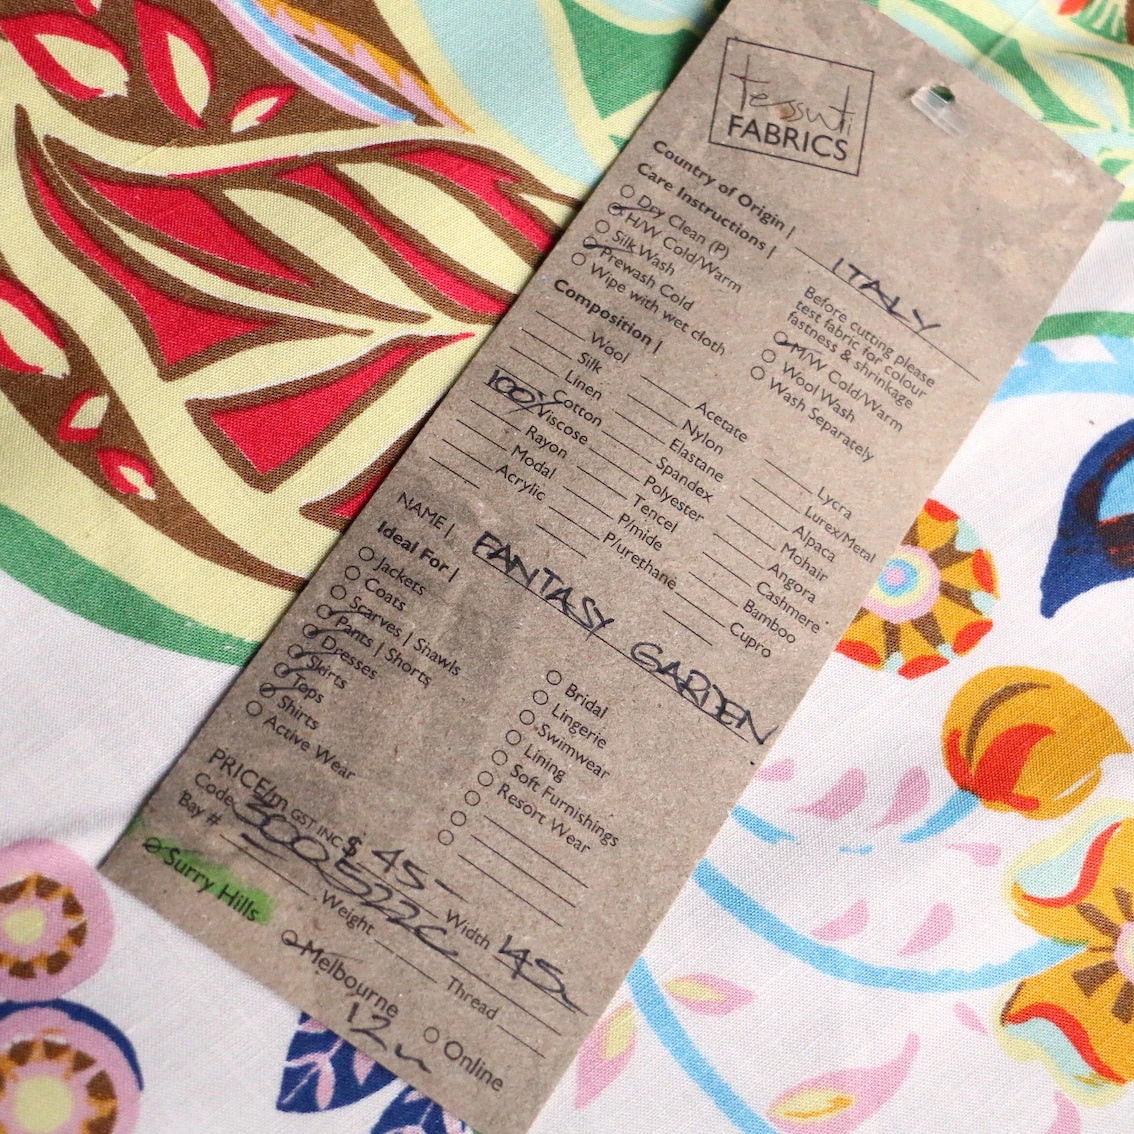 tessuti
FABRICS
Country of Origin | ITALY
Care Instructions |
Dry Clean (P)
H/W Cold/Warm
Silk Wash
Prewash Cold
Wipe with wet cloth
Before cutting please
test fabric for colour
fastness & shrinkage
M/W Cold/Warm
Wool Wash
Wash Separately
Composition |
Wool
Silk
Linen
Cotton
100% Viscose
Rayon
Modal
Acrylic
Acetate
Nylon
Elastane
Spandex
Polyester
Tencel
P/mide
P/urethane
Lycra
Lurex/Metal
Alpaca
Mohair
Angora
Cashmere
Bamboo
Cupro
NAME | FANTASY GARDEN
Ideal For |
Jackets
Coats
Scarves | Shawls
Pants | Shorts
Dresses
Skirts
Tops
Shirts
Active Wear
Bridal
Lingerie
Swimwear
Lining
Soft Furnishings
Resort Wear
PRICE/m GST INC $ 45- Width 145
Code 300522C
Bay # Weight Thread
Surry Hills Melbourne Online
12m